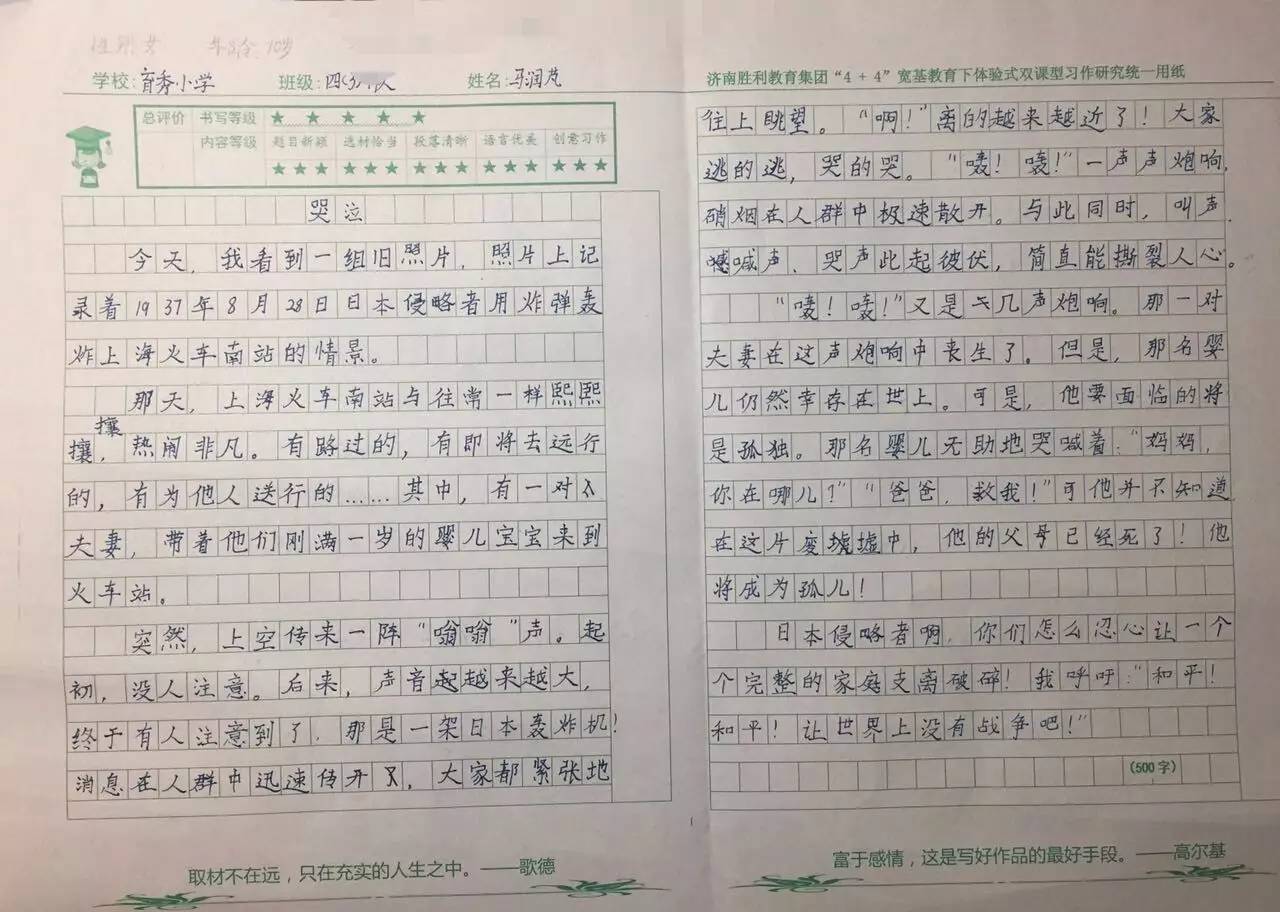 性别:女 年龄:10岁
学校:育秀小学 班级:四 姓名:马润
总评价 书写等级 ★ ★ ★ ★ ★
内容等级 题目新颖 选材恰当 段落清晰 语言优美 创意习作
★★★ ★★★ ★★★ ★★★ ★★★
哭泣
今天,我看到一组旧照片,照片上记
录着1937年8月28日日本侵略者用炸弹轰
炸上海火车南站的情景。
那天,上海火车南站与往常一样熙熙
攘攘,热闹非凡。有路过的,有即将去远行
的,有为他人送行的……其中,有一对
夫妻,带着他们刚满一岁的婴儿宝宝来到
火车站。
突然,上空传来一阵“嗡嗡”声。起
初,没人注意。后来,声音起越来越大,
终于有人注意到了,那是一架日本轰炸机!
消息在人群中迅速传开,大家都紧张地
取材不在远,只在充实的人生之中。——歌德
济南胜利教育集团“4+4”宽基教育下体验式双课型习作研究统一用纸
往上眺望。“啊!”离的越来越近了!大家
逃的逃,哭的哭。“轰!轰!”一声声炮响,
硝烟在人群中极速散开。与此同时,叫声、
喊声、哭声此起彼伏,简直能撕裂人心。
“轰!轰!”又是几声炮响。那一对
夫妻在这声炮响中丧生了。但是,那名婴
儿仍然幸存在世上。可是,他要面临的将
是孤独。那名婴儿无助地哭喊着:“妈妈,
你在哪儿?”“爸爸,救我!”可他并不知道,
在这片废墟墟中,他的父母已经死了!他
将成为孤儿!
日本侵略者啊,你们怎么忍心让一个
个完整的家庭支离破碎!我呼吁:“和平!
和平!让世界上没有战争吧!”
(500字)
富于感情,这是写好作品的最好手段。——高尔基